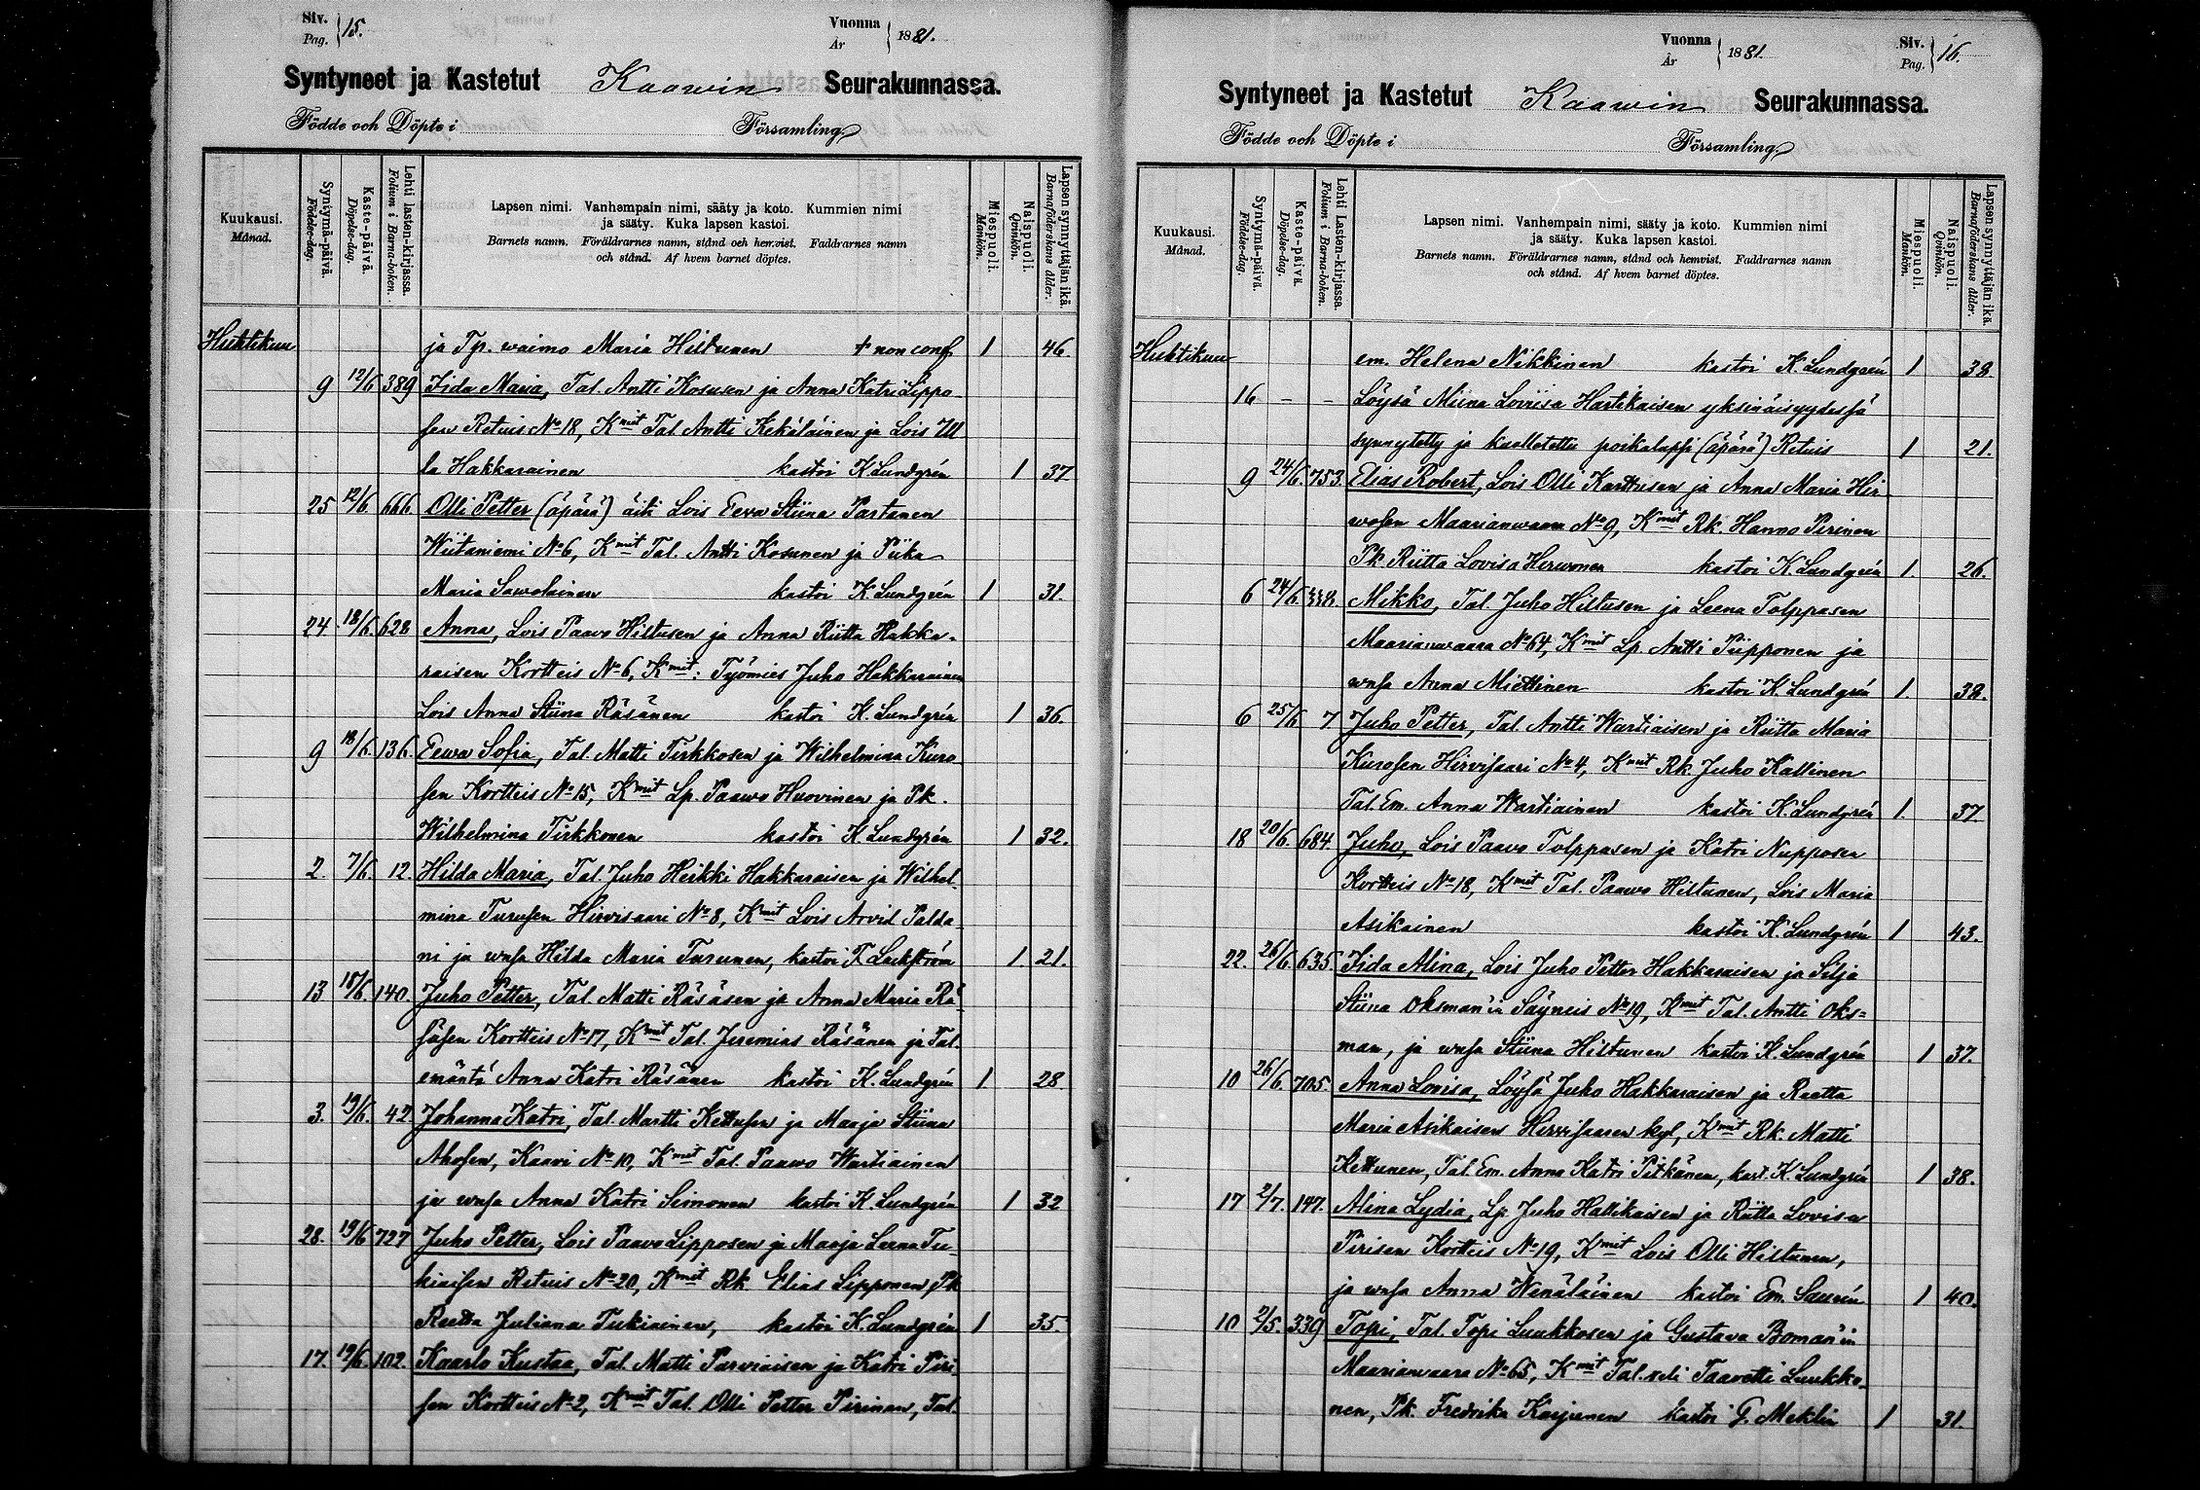 Siv. Pag. 15. Vuonna År 1881.
Syntyneet ja Kastetut Kaawin Seurakunnassa.
Födde och Döpte i Församling
Kuukausi. Månad.
Syntymä-päivä. Födelse-dag.
Kaste-päivä. Döpelse-dag.
Lehti lasten-kirjassa. Folium i Barna-boken.
Lapsen nimi. Vanhempain nimi, sääty ja koto. Kummien nimi
ja sääty. Kuka lapsen kastoi.
Barnets namn. Föräldrarnes namn, stånd och hemvist. Faddrarnes namn
och stånd. Af hvem barnet döptes.
Miespuoli. Mankön.
Naispuoli. Qvinkön.
Lapsen synnyttäjän ikä. Barnaföderskans ålder.
Huhtikuu ja Tp. waimo Maria Hiltunen + non conf. 1 46.
9 12/6 389 Iida Maria, Tal. Antti Kosusen ja Anna Katri Lippo-
sen Retuis No 18, Kmit Tal Antti Kekäläinen ja Lois Ul
la Hakkarainen kastoi K Lundgrén 1 37
25 12/6 666 Olli Petter (äpärä) äiti Lois Eeva Stiina Partanen
Wiitaniemi No 6, Kmit Tal. Antti Kosunen ja Piika
Maria Sawolainen kastoi K Lundgrén 1 31.
24. 18/6. 628 Anna, Lois Paavo Hiltusen ja Anna Riitta Hakka-
raisen Kortteis No 6, Kmit: Työmies Juho Hakkarainen
Lois Anna Stiina Räsänen kastoi K. Lundgrén 1 36.
9 18/6. 136. Eewa Sofia, Tal. Matti Tirkkosen ja Wilhelmina Kuro
sen Kortteis No 15, Kmit Lp. Paawo Huovinen ja Pk.
Wilhelmina Tirkkonen kastoi K. Lundgrén 1 32.
2. 7/6. 12. Hilda Maria, Tal. Juho Heikki Hakkaraisen ja Wilhel
mina Turusen Hirvisaari No 8, Kmit Lois Arvid Palda
ni ja wmsa Hilda Maria Turunen, kastoi F. Lackström 1. 21.
13 18/6. 140. Juho Petter, Tal. Matti Räsäsen ja Anna Maria Rä
säsen Kortteis No 17, Kmit Tal. Jeremias Räsänen ja Tal.
emäntä Anna Katri Räsänen kastoi K. Lundgrén 1 28
3. 19/6. 42 Johanna Katri, Tal. Martti Kettusen ja Maaja Stiina
Ahosen, Kaavi No 10, Kmit Tal. Paawo Wartiainen
ja wmsa Anna Katri Simonen kastoi K. Lundgrén 1 32
28. 19/6 727 Juho Petter, Lois Paavo Lipposen ja Maaja Leena Tu-
kiaisen Retuis No 20, Kmit Rk. Elias Lipponen, Pk
Reetta Juliana Tukiainen, kastoi K. Lundgrén 1 35.
17. 19/6. 102. Kaarlo Kustaa, Tal. Matti Parviaisen ja Katri Piri-
sen Kortteis No 2, Kmit Tal. Olli Petter Pirinen, Tal.
Vuonna År 1881. Siv. Pag. 16.
Syntyneet ja Kastetut Kaawin Seurakunnassa.
Födde och Döpte i Församling
Kuukausi. Månad.
Syntymä-päivä. Födelse-dag.
Kaste-päivä. Döpelse-dag.
Lehti Lasten-kirjassa. Folium i Barna-boken.
Lapsen nimi. Vanhempain nimi, sääty ja koto. Kummien nimi
ja sääty. Kuka lapsen kastoi.
Barnets namn. Föräldrarnes namn, stånd och hemvist. Faddrarnes namn
och stånd. Af hvem barnet döptes.
Miespuoli. Mankön.
Naispuoli. Qvinkön.
Lapsen synnyttäjän ikä. Barnaföderskans ålder.
Huhtikuu em. Helena Nikkinen kastoi K. Lundgrén 1 38.
16 - - Löysä Miina Loviisa Hartikaisen yksinäisyydessä
synnytetty ja kuolletettu poikalapsi (äpärä) Retuis 1 21.
9 24/6. 753. Elias Robert, Lois Olli Karttusen ja Anna Maria Hir
wosen Maarianwaara No 9, Kmit Rk. Hannu Pirinen
Pk Riitta Lovisa Hirwonen kastoi K Lundgrén 1. 26.
6 24/6. 338. Mikko, Tal. Juho Hiltusen ja Leena Tolppasen
Maarianwaara No 64, Kmit Lp. Antti Piipponen ja
wmsa Anna Miettinen kastoi K. Lundgrén 1. 38.
6 25/6 7 Juho Petter, Tal. Antti Wartiaisen ja Riitta Maria
Kurosen Hirvisaari No 4, Kmit Rk. Juho Kallinen
Tal. Em. Anna Wartiainen kastoi K. Lundgrén 1. 37.
18 20/6. 684. Juho, Lois Paavo Tolppasen ja Katri Nupposen
Kortteis No 18, Kmit Tal. Paawo Hiltunen, Lois Maria
Asikainen kastoi K. Lundgrén 1 43.
22. 26/6. 635. Iida Alina, Lois Juho Petter Hakkaraisen ja Silja
Stiina Oksman'in Säyneis No 19, Kmit Tal. Antti Oks=
man, ja wmsa Stiina Hiltunen kastoi K. Lundgrén 1 37.
10 26/6. 705. Anna Lovisa, Löysä Juho Hakkaraisen ja Reetta
Maria Asikaisen Hirvisaaren kyl, Kmit Rk. Matti
Kettunen, Tal. Em. Anna Katri Pitkänen, kast. K. Lundgrén 1 38.
17 2/7. 147. Alina Lydia, Lp. Juho Hallikaisen ja Riitta Lovisa
Pirisen Kortteis No 19, Kmit Lois Olli Hiltunen,
ja wmsa Anna Wenäläinen kastoi Em. Saurén 1 40.
10 2/5. 339 Topi, Tal. Topi Luukkosen ja Gustava Boman'in
Maarianwaara No 65, Kmit Tal. veli Taavetti Luukko-
nen, Pk. Fredrika Karjunen kastoi G. Meklin 1 31.